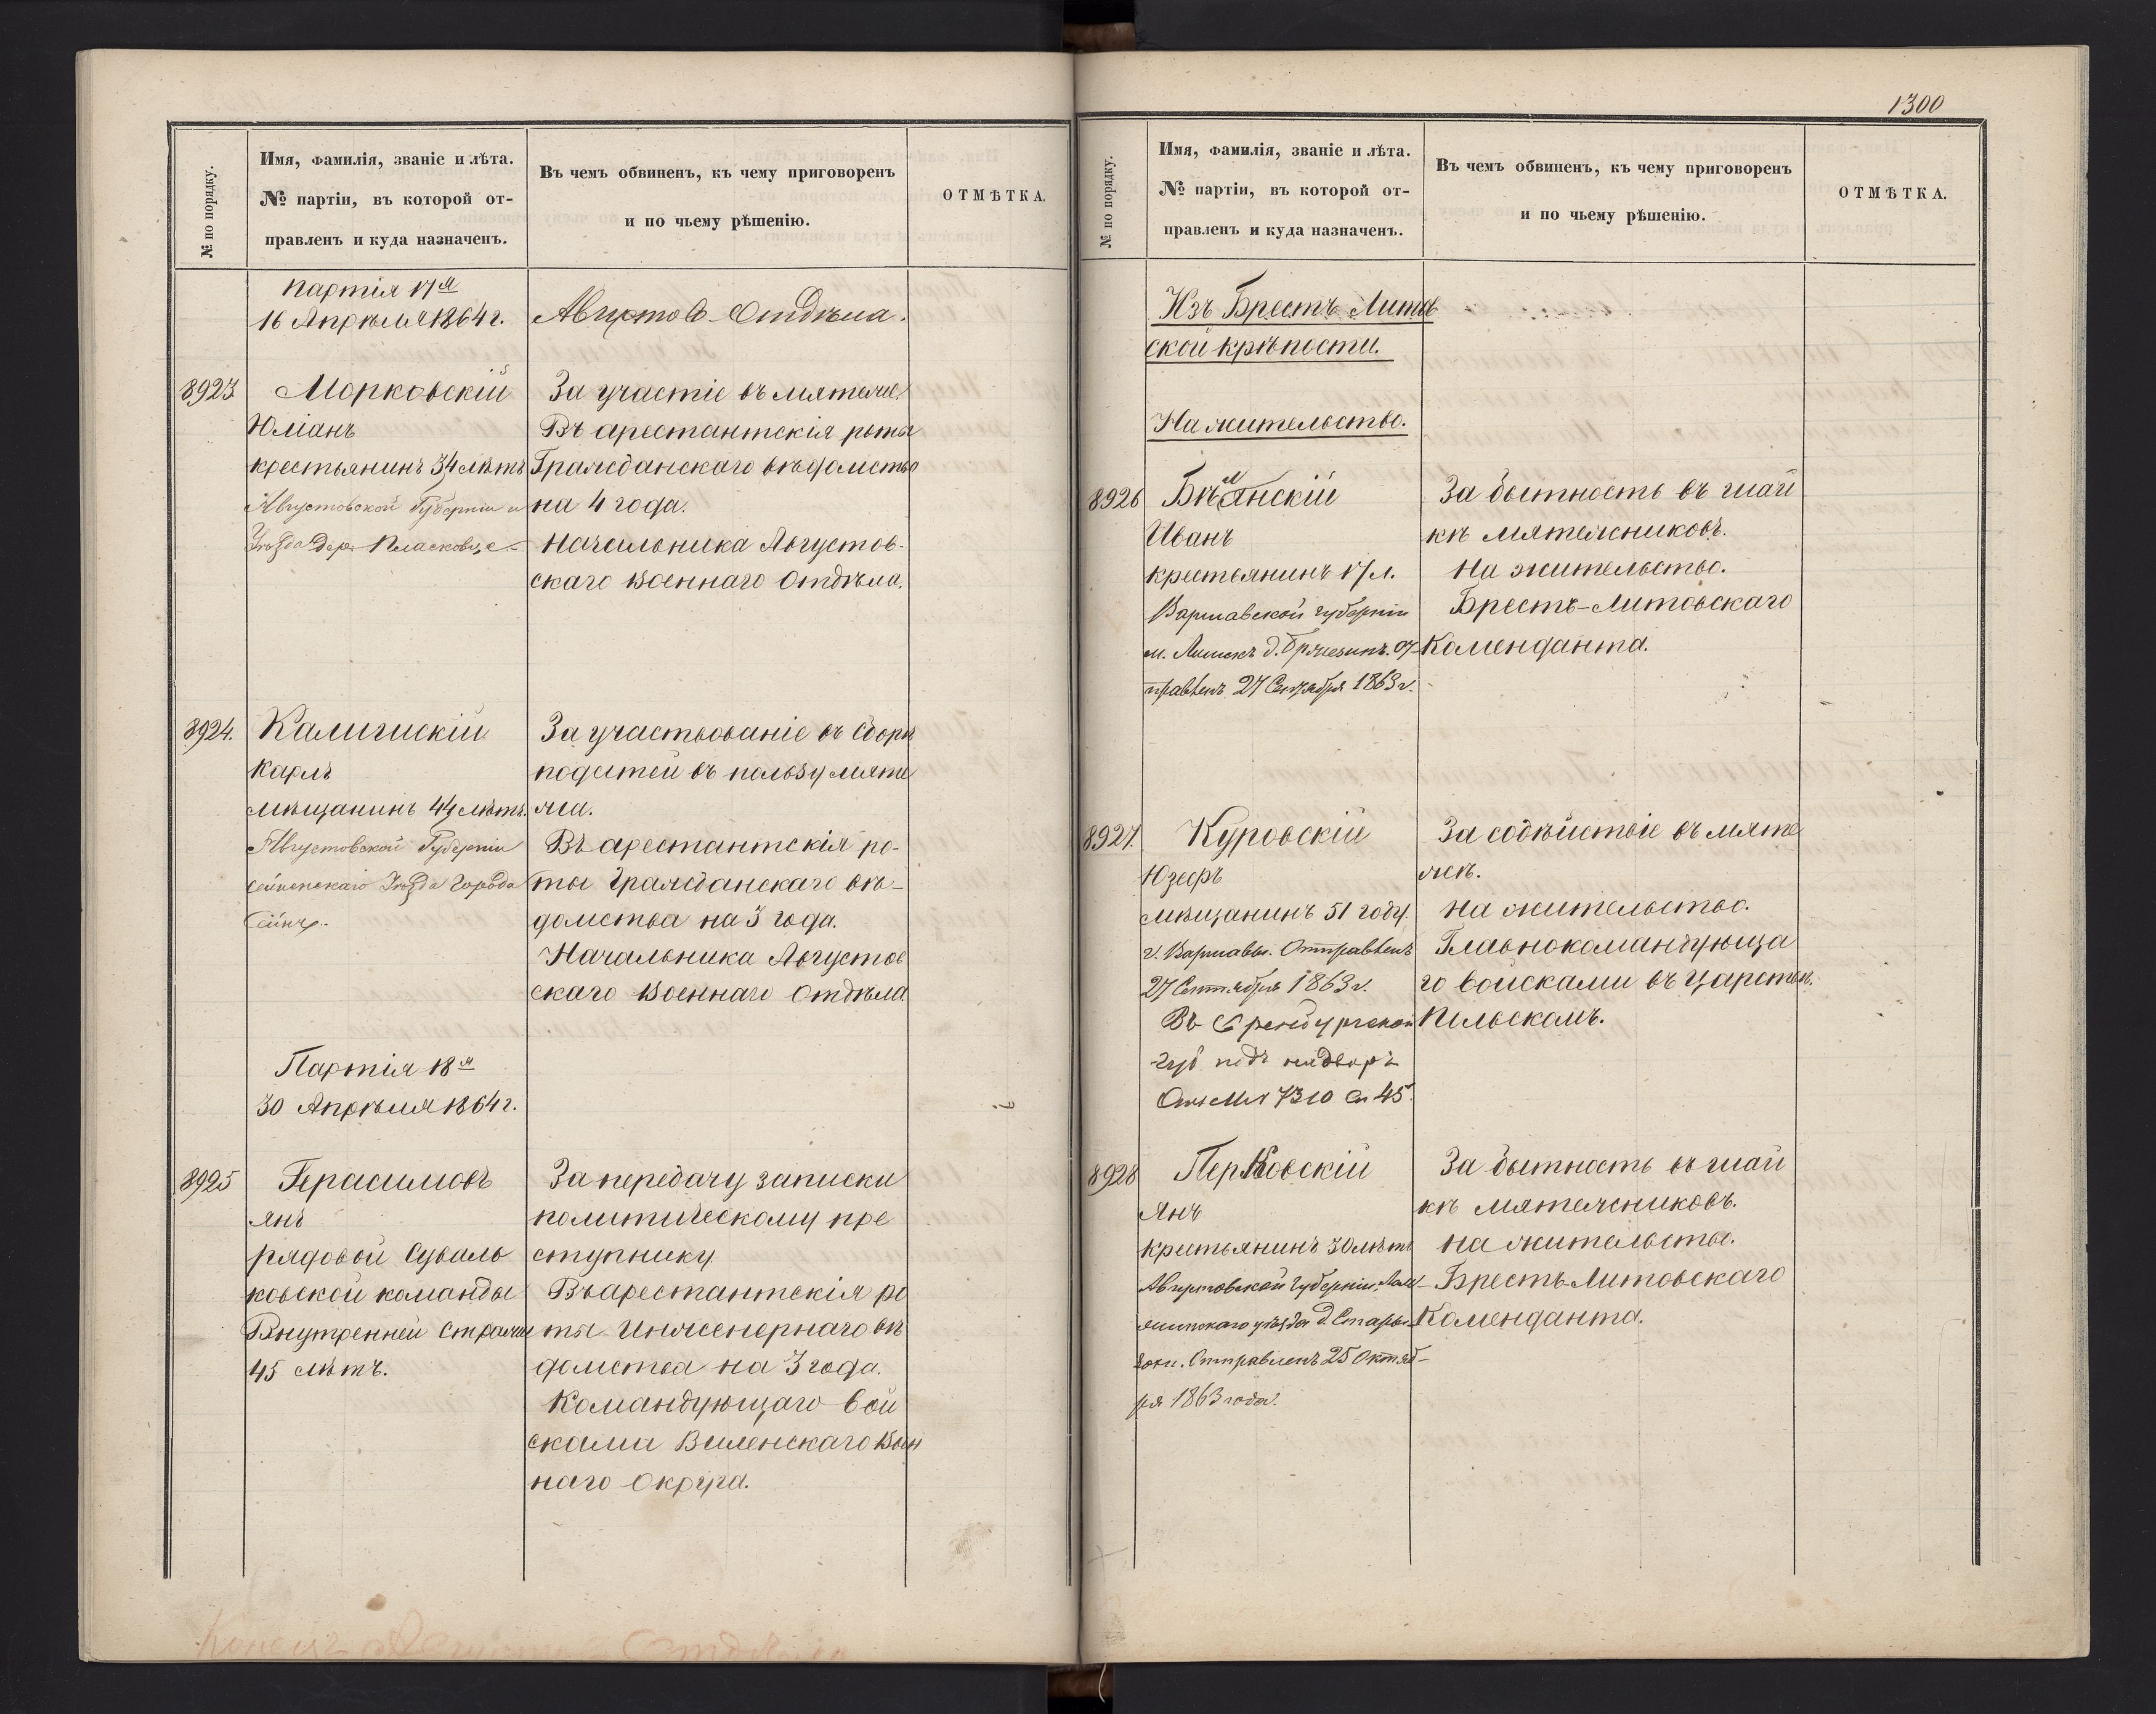 № по порядку.
Имя, фамилія, званіе и лѣта.
№ партіи, въ которой от-
правленъ и куда назначенъ.
Въ чемъ обвиненъ, къ чему приговоренъ
и по чьему рѣшенію.
ОТМѢТКА.
Партія 17я
16 Апрѣля 1864 г.
Августов. Отдѣла.
8923
Морковскій
Юліанъ
крестьянинъ 34 лѣтъ
Августовской Губерніи и
Уѣзда дер.
За участіе въ мятежѣ.
Въ арестантскія роты
Гражданскаго вѣдомства
на 4 года.
Начальника Августов-
скаго Военнаго Отдѣла.
8924.
Карлъ
мѣщанинъ 44 лѣтъ.
Августовской Губерніи
Сейненскаго Уѣзда Города
Сейнъ.
За участвованіе въ сборѣ
податей въ пользу мяте
жа.
Въ арестантскія ро-
ты Гражданскаго вѣ-
домства на 3 года.
Начальника Августов
скаго Военнаго Отдѣла
Партія 18я
30 Апрѣля 1864 г.
8925
Герасимовъ
Янъ
рядовой Суваль
ковской команды
Внутренней Стражи
45 лѣтъ.
За передачу записки
политическому пре
ступнику.
Въ арестантскія ро
ты Инженернаго вѣ
домства на 3 года.
Командующаго вой
сками Виленскаго Воен
наго Округа.
Конецъ Августов Отдѣла
1300
№ по порядку.
Имя, фамилія, званіе и лѣта.
№ партіи, въ которой от-
правленъ и куда назначенъ.
Въ чемъ обвиненъ, къ чему приговоренъ
и по чьему рѣшенію.
ОТМѢТКА.
Изъ Брестъ Литов
ской крѣпости.
На жительство.
8926
Бѣлянскій
Иванъ
крестьянинъ 17 л.
Варшавской губерніи
от-
правленъ 27 Сентября 1863 г.
За бытность въ шай
кѣ мятежниковъ.
На жительство.
Брестъ-Литовскаго
Коменданта.
8927.
Куровскій
Юзефъ
мѣщанинъ 51 году.
г. Варшавы. Отправленъ
27 Сентября 1863 г.
Въ Оренбургской
губ подъ надзоръ
7310 45.
За содѣйствіе въ мяте
жѣ.
На жительство.
Главнокомандующа
го войсками въ Царствѣ.
Польскомъ.
8928
Перковскій
Янъ
крестьянинъ 30 лѣтъ
Августовской губерніи, Лом-
жинскаго уѣзда д. Стары-
Отправленъ 25 Октяб-
ря 1863 года.
За бытность въ шай
кѣ мятежниковъ.
На жительство.
Брестъ Литовскаго
Коменданта.